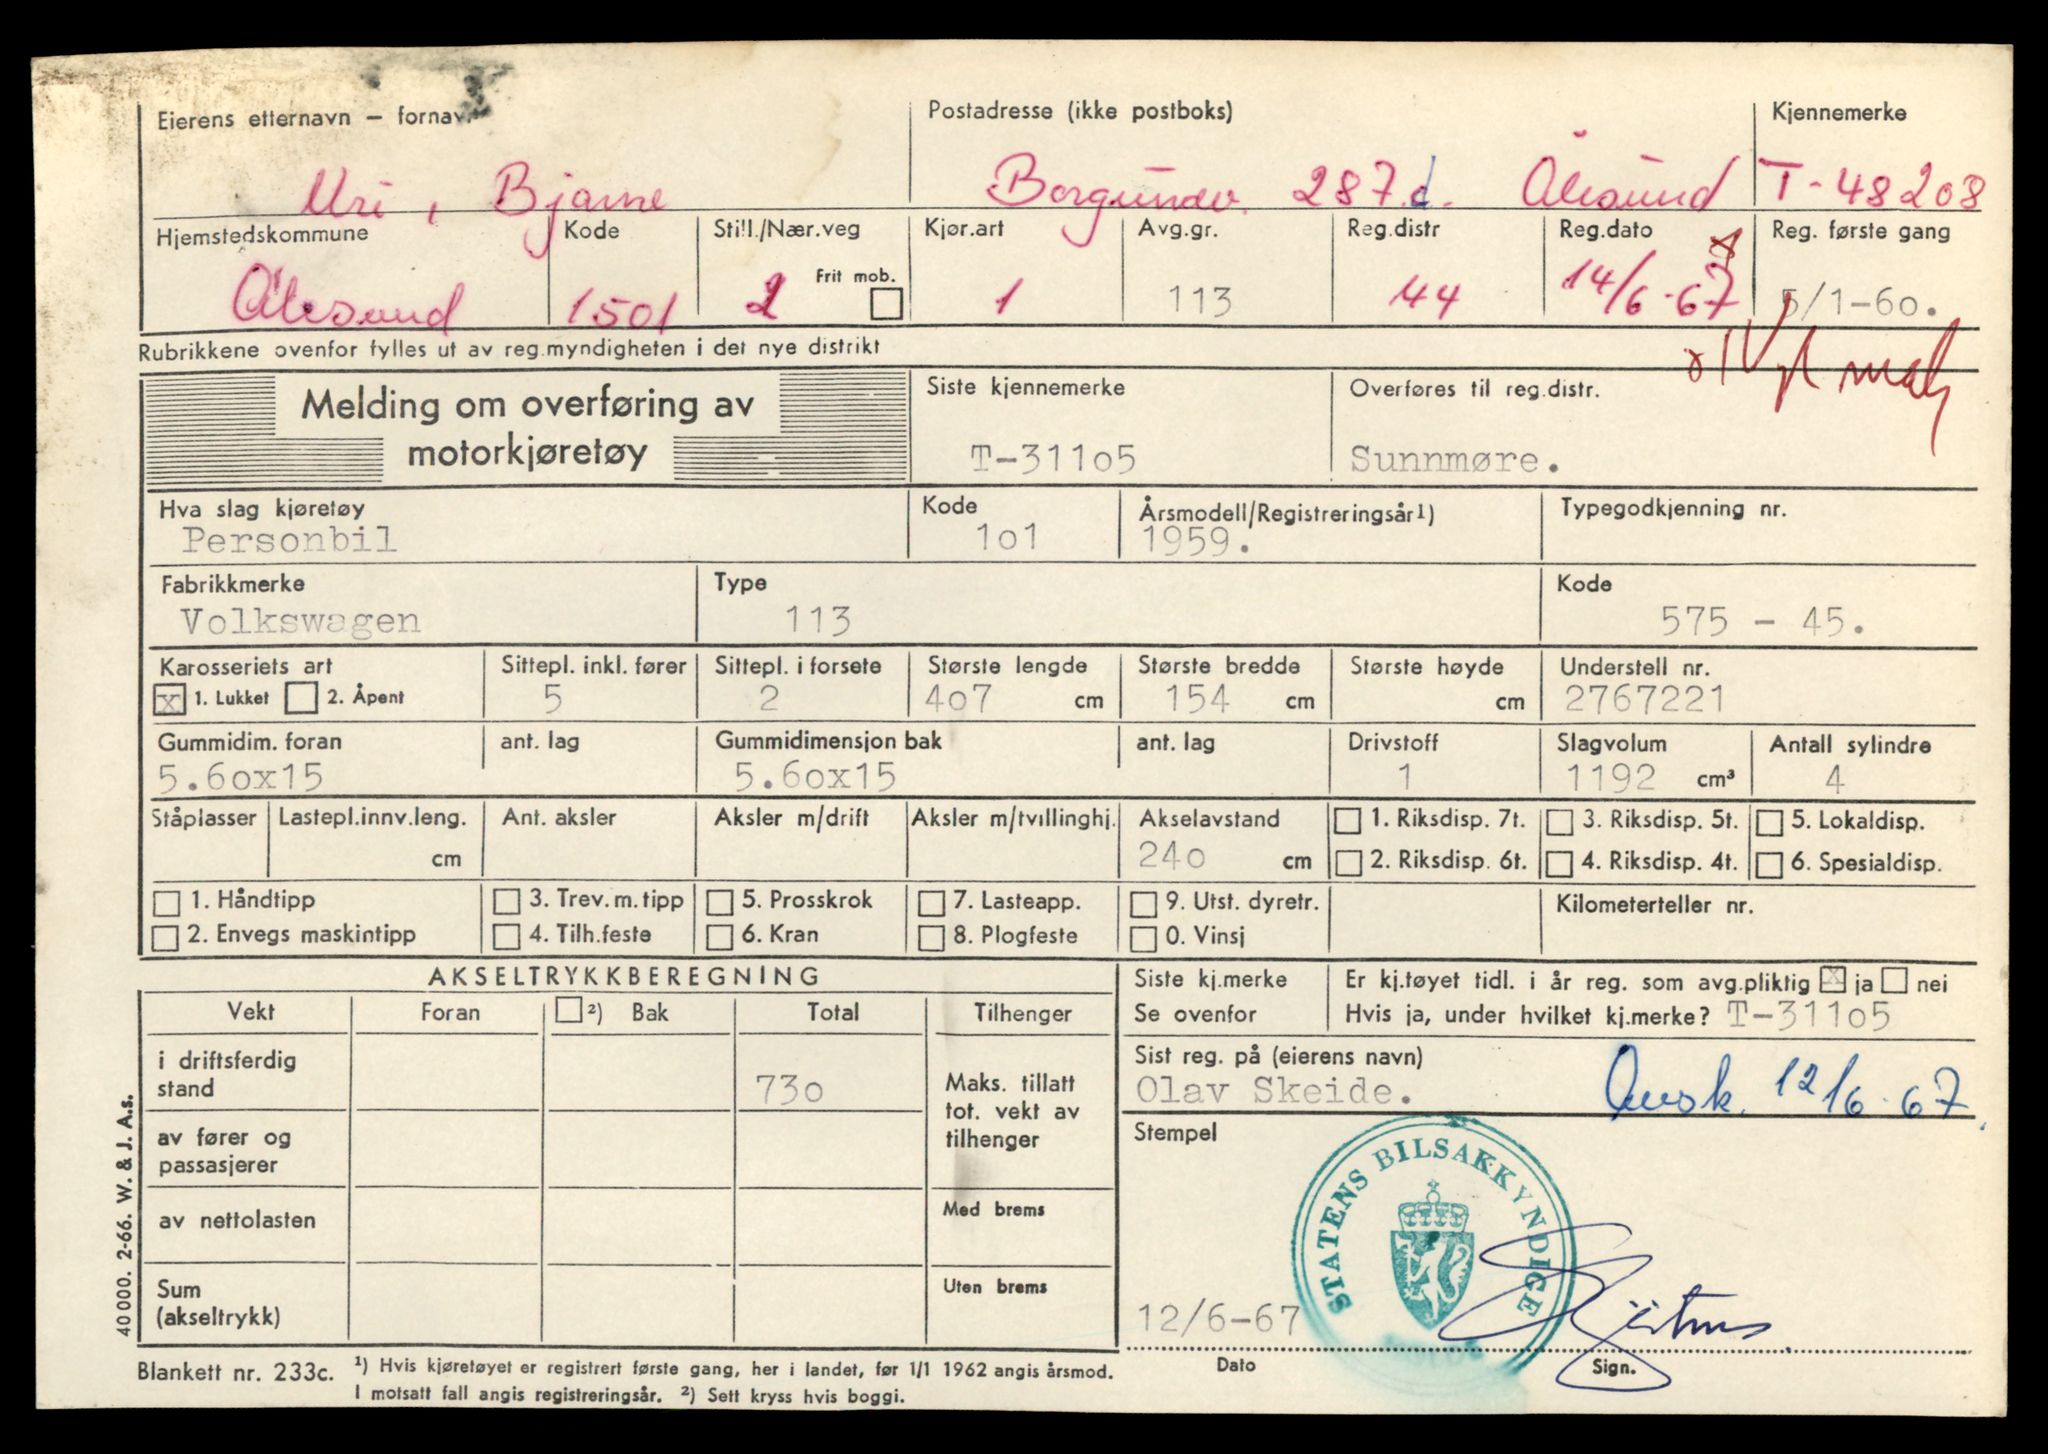 Eierens etternavn – fornavn Postadresse (ikke postboks) Kjennemerke
Uri, Bjarne Borgundv. 287.d. Ålesund T-48208
Hjemstedskommune Kode Still./Nær.veg Kjør.art Avg.gr. Reg.distr Reg.dato Reg. første gang
Frit mob.
Ålesund 1501 2 1 113 44 14/6-67 5/1-60.
Rubrikkene ovenfor fylles ut av reg.myndigheten i det nye distrikt
Melding om overføring av
motorkjøretøy
Siste kjennemerke Overføres til reg.distr.
T-31105 Sunnmøre.
Hva slag kjøretøy Kode Årsmodell/Registreringsår1) Typegodkjenning nr.
Personbil 101 1959.
Fabrikkmerke Type Kode
Volkswagen 113 575 - 45.
Karosseriets art Sittepl. inkl. fører Sittepl. i forsete Største lengde Største bredde Største høyde Understell nr.
x 1. Lukket 2. Åpent 5 2 407 cm 154 cm cm 2767221
Gummidim. foran ant. lag Gummidimensjon bak ant. lag Drivstoff Slagvolum Antall sylindre
5.60x15 5.60x15 1 1192 cm³ 4
Ståplasser Lastepl.innv.leng. Ant. aksler Aksler m/drift Aksler m/tvillinghj. Akselavstand 1. Riksdisp. 7t. 3. Riksdisp. 5t. 5. Lokaldisp.
cm 240 cm 2. Riksdisp. 6t. 4. Riksdisp. 4t. 6. Spesialdisp.
1. Håndtipp 3. Trev. m. tipp 5. Prosskrok 7. Lasteapp. 9. Utst. dyretr. Kilometerteller nr.
2. Envegs maskintipp 4. Tilh.feste 6. Kran 8. Plogfeste 0. Vinsj
AKSELTRYKKBEREGNING
Siste kj.merke Er kj.tøyet tidl. i år reg. som avg.pliktig x ja nei
Se ovenfor Hvis ja, under hvilket kj.merke? T-31105
Vekt Foran 2) Bak Total Tilhenger
i driftsferdig
stand 730
Maks. tillatt
tot. vekt av
tilhenger
Sist reg. på (eierens navn)
Olav Skeide. 12/6-67
av fører og
passasjerer
Stempel
STATENS BILSAKKYNDIGE
av nettolasten Med brems
Sum
(akseltrykk)
Uten brems
12/6-67
Dato Sign.
40 000. 2-66. W. & J. A.s.
Blankett nr. 233c. 1) Hvis kjøretøyet er registrert første gang, her i landet, før 1/1 1962 angis årsmod.
I motsatt fall angis registreringsår. 2) Sett kryss hvis boggi.